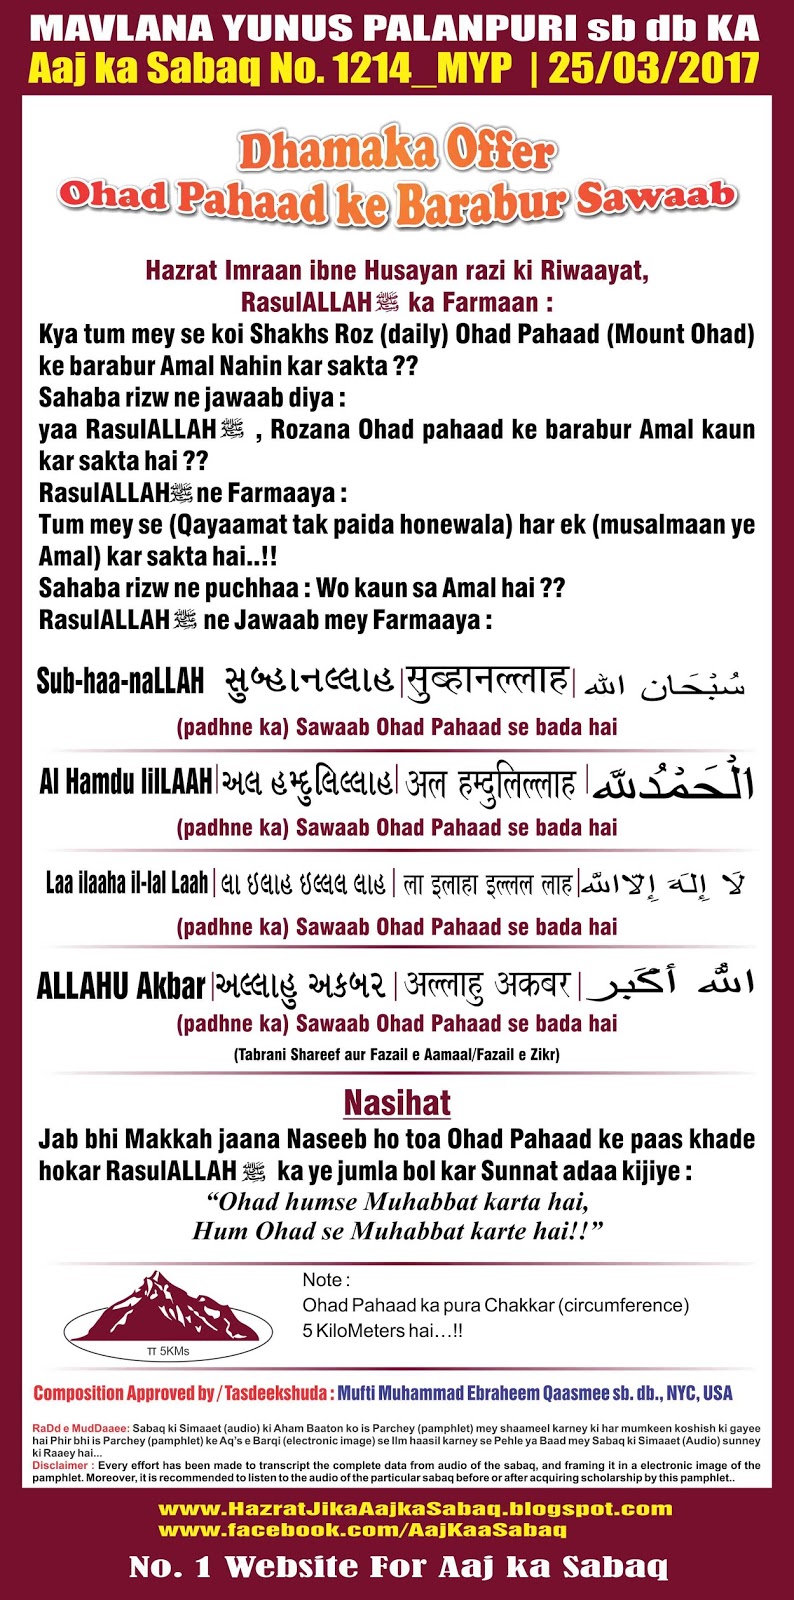 MAVLANA YUNUS PALANPURI sb db KA
Aaj ka Sabaq No. 1214_MYP | 25/03/2017
Dhamaka Offer
Ohad Pahaad ke Barabur Sawaab
Hazrat Imraan ibne Husayan razi ki Riwaayat,
RasulALLAHﷺ ka Farmaan :
Kya tum mey se koi Shakhs Roz (daily) Ohad Pahaad (Mount Ohad)
ke barabur Amal Nahin kar sakta ??
Sahaba rizw ne jawaab diya :
yaa RasulALLAHﷺ , Rozana Ohad pahaad ke barabur Amal kaun
kar sakta hai ??
RasulALLAHﷺ ne Farmaaya :
Tum mey se (Qayaamat tak paida honewala) har ek (musalmaan ye
Amal) kar sakta hai..!!
Sahaba rizw ne puchhaa : Wo kaun sa Amal hai ??
RasulALLAHﷺ ne Jawaab mey Farmaaya :
Sub-haa-naLLAH સુબ્હાનલ્લાહ|सुब्हानल्लाह| سُبْحَان الله
(padhne ka) Sawaab Ohad Pahaad se bada hai
Al Hamdu lilLAAH|અલ હમ્દુલિલ્લાહ| अल हम्दुलिल्लाह |الْحَمْدُلله
(padhne ka) Sawaab Ohad Pahaad se bada hai
Laa ilaaha il-lal Laah|લા ઇલાહ ઇલ્લલ લાહ| ला इलाहा इल्लल लाह|لَا إِلَهَ إِلاالله
(padhne ka) Sawaab Ohad Pahaad se bada hai
ALLAHU Akbar|અલ્લાહુ અકબર|अल्लाहु अकबर| الله أكبر
(padhne ka) Sawaab Ohad Pahaad se bada hai
(Tabrani Shareef aur Fazail e Aamaal/Fazail e Zikr)
Nasihat
Jab bhi Makkah jaana Naseeb ho toa Ohad Pahaad ke paas khade
hokar RasulALLAH ﷺ ka ye jumla bol kar Sunnat adaa kijiye :
“Ohad humse Muhabbat karta hai,
Hum Ohad se Muhabbat karte hai!!”
Note :
Ohad Pahaad ka pura Chakkar (circumference)
5 KiloMeters hai...!!
π 5KMs
Composition Approved by / Tasdeekshuda : Mufti Muhammad Ebraheem Qaasmee sb. db., NYC, USA
RaDd e MudDaaee: Sabaq ki Simaaet (audio) ki Aham Baaton ko is Parchey (pamphlet) mey shaameel karney ki har mumkeen koshish ki gayee
hai Phir bhi is Parchey (pamphlet) ke Aq's e Barqi (electronic image) se Ilm haasil karney se Pehle ya Baad mey Sabaq ki Simaaet (Audio) sunney
ki Raaey hai...
Disclaimer : Every effort has been made to transcript the complete data from audio of the sabaq, and framing it in a electronic image of the
pamphlet. Moreover, it is recommended to listen to the audio of the particular sabaq before or after acquiring scholarship by this pamphlet..
www.HazratJikaAajkaSabaq.blogspot.com
www.facebook.com/AajKaaSabaq
No. 1 Website For Aaj ka Sabaq